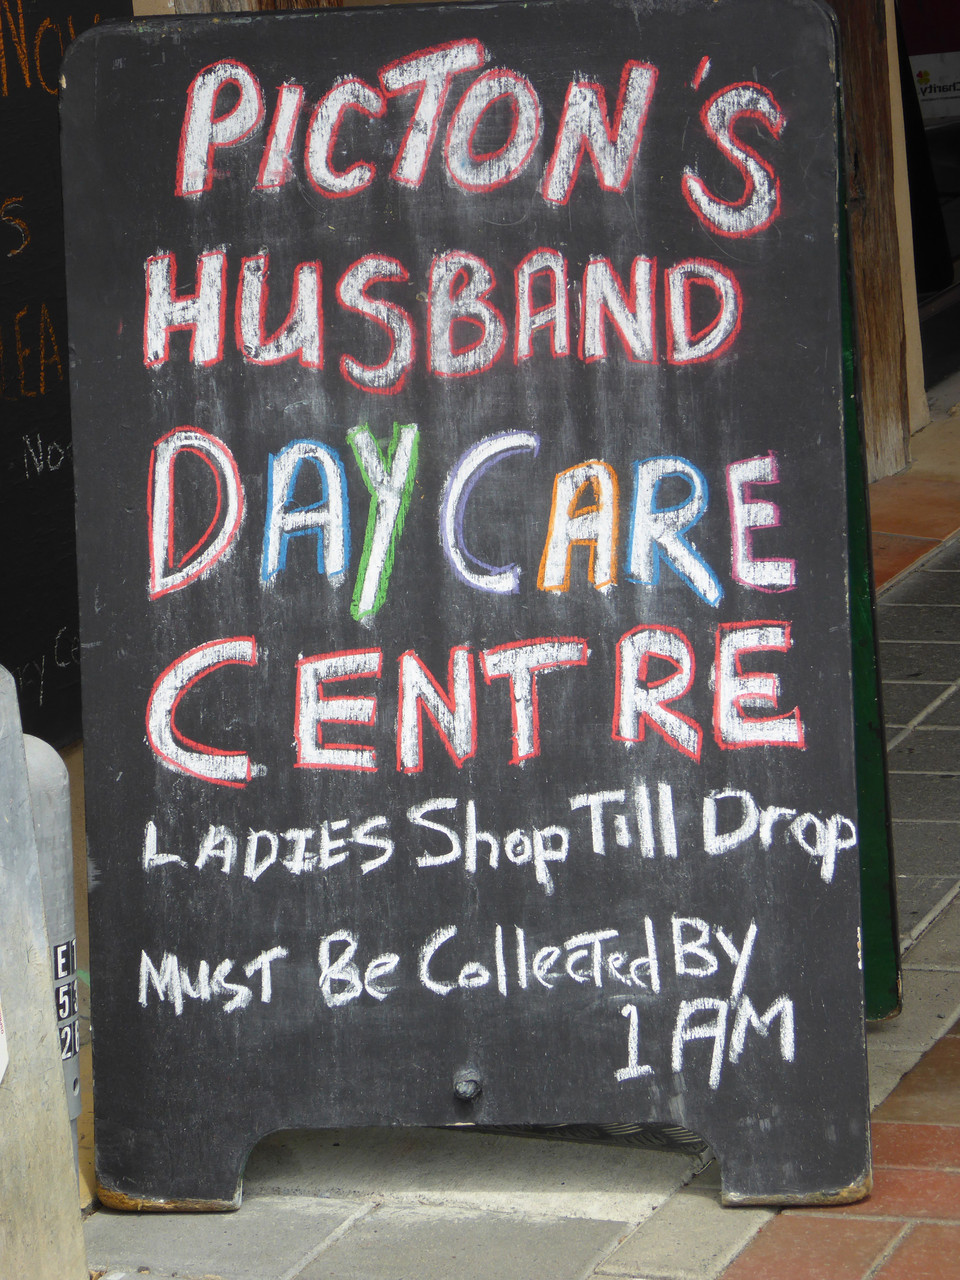 PICTON'S
HUSBAND
DAYCARE
CENTRE
LADIES Shop Till Drop
Must Be Collected By
1 AM